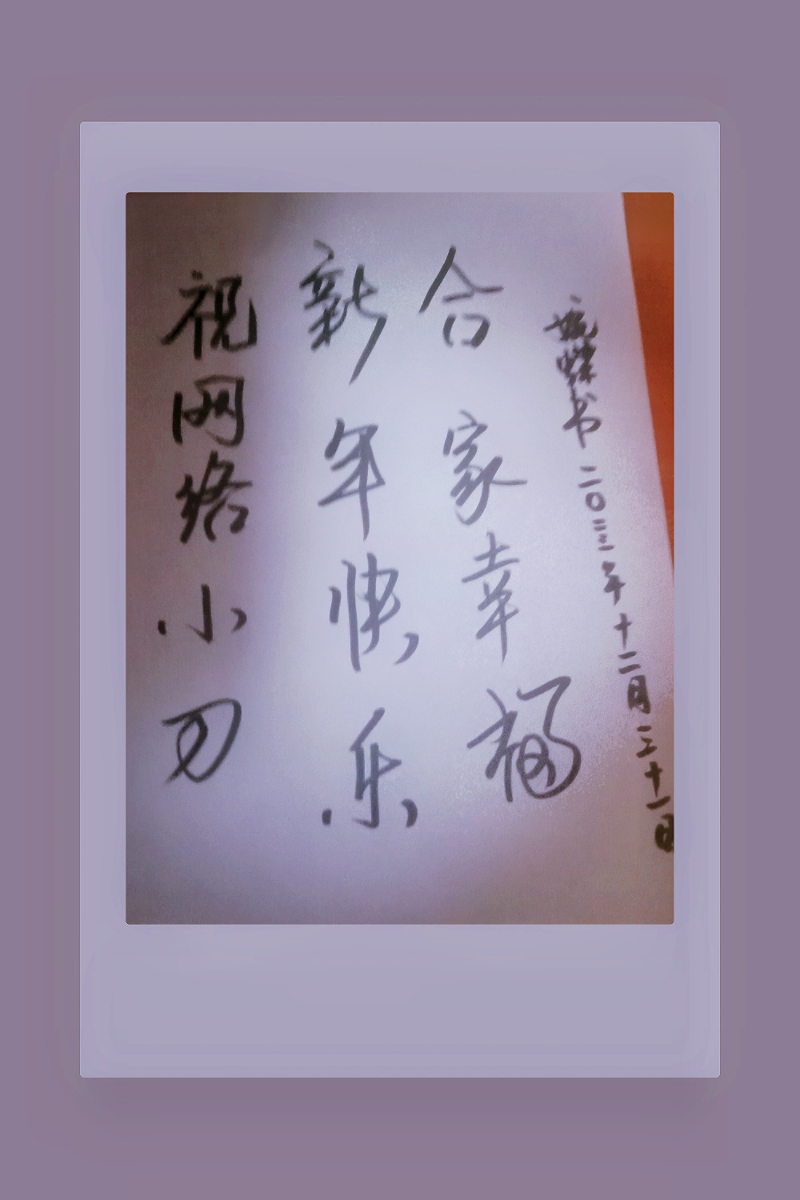 视网络小刀
新年快乐
合家幸福
蝶书 二〇二三年十二月三十一日